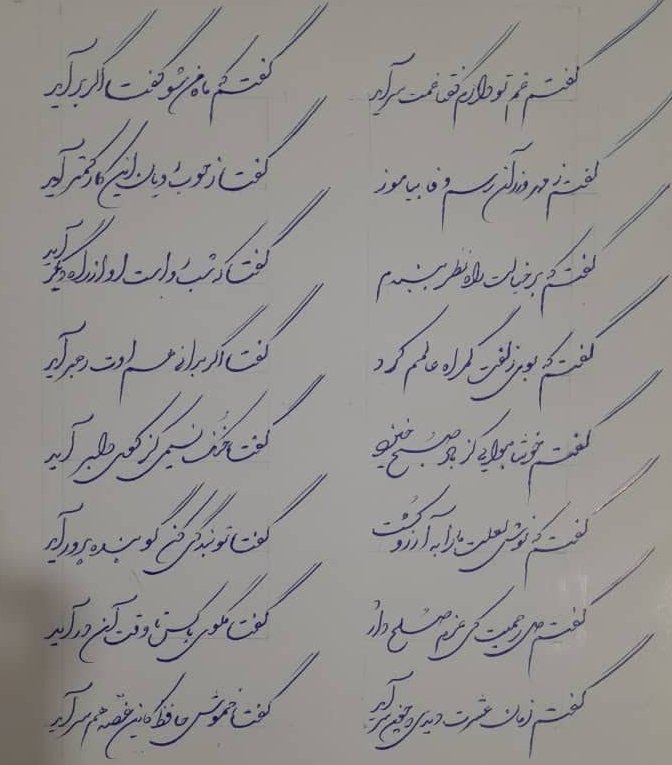 گفتم غم تو دارم گفتا غمت سرآید گفتم که ماه من شو گفتا اگر برآید
گفتم ز مهرورزان رسم وفا بیاموز گفتا ز خوب رویان این کار کمتر آید
گفتم که بر خیالت راه نظر ببندم گفتا که شب رو است او از راه دیگر آید
گفتم که بوی زلفت گمراه عالمم کرد گفتا اگر بدانی هم اوت رهبر آید
گفتم خوشا هوایی کز باد صبح خیزد گفتا خُنُک نسیمی کز کوی دلبر آید
گفتم که نوش لعلت ما را به آرزو کُشت گفتا تو بندگی کن کو بنده پرور آید
گفتم دل رحیمت کی عزم صلح دارد گفتا مگوی با کس تا وقت آن درآید
گفتم زمان عشرت دیدی که چون سرآید گفتا خموش حافظ کاین غصّه هم سرآید